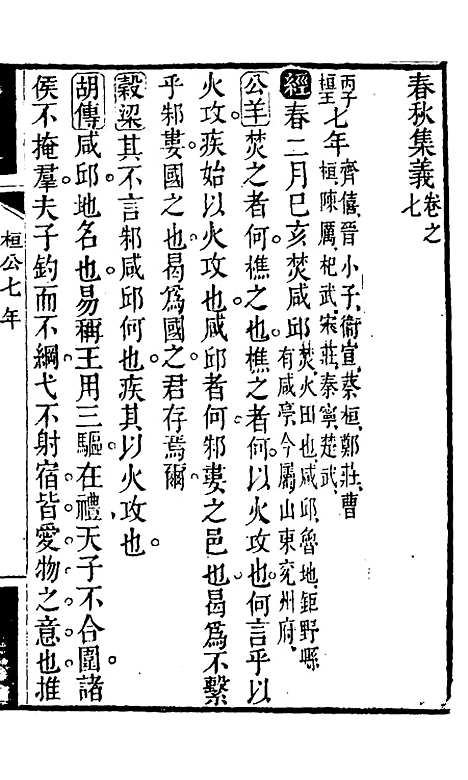 春秋集義卷之七
丙子桓王七年齊僖晉小子衞宣蔡桓鄭莊曹
桓陳厲杞武宋莊秦寧楚武
經春二月巳亥焚咸邱焚火田也咸邱魯地鉅野縣
有咸亭今屬山東兖州府
公羊焚之者何樵之也樵之者何以火攻也何言乎以
火攻疾始以火攻也咸邱者何邾婁之邑也曷爲不繫
乎邾婁國之也曷爲國之君存焉爾
穀梁其不言邾咸邱何也疾其以火攻也
胡傳咸邱地名也易稱王用三驅在禮天子不合圍諸
侯不掩羣夫子釣而不綱弋不射宿皆愛物之意也推
桓公七年